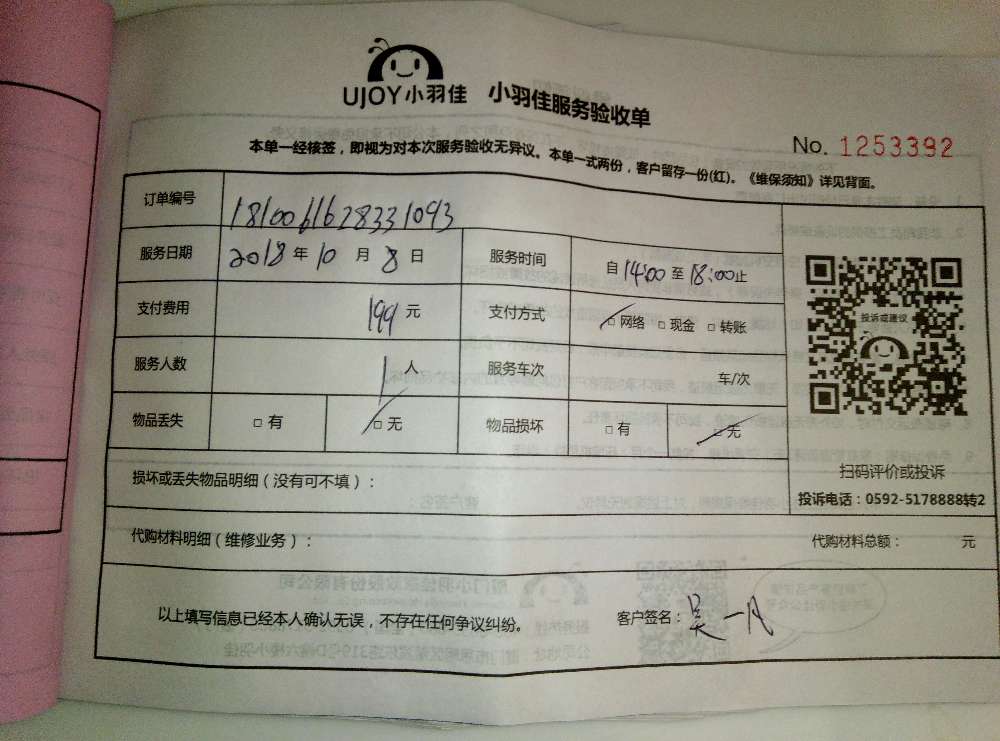 UJOY小羽佳 小羽佳服务验收单
No. 1253392
本单一经核签，即视为对本次服务验收无异议。本单一式两份，客户留存一份(红)。《维保须知》详见背面。
订单编号 1810061628331093
服务日期 2018年10月8日 服务时间 自14:00至18:00止
支付费用 199元 支付方式 □网络 □现金 □转账
投诉或建议
服务人数 1人 服务车次 车/次
物品丢失 □有 □无 物品损坏 □有 □无
扫码评价或投诉
损坏或丢失物品明细（没有可不填）：
投诉电话：0592-5178888转2
代购材料明细（维修业务）： 代购材料总额： 元
以上填写信息已经本人确认无误，不存在任何争议纠纷。 客户签名：吴一凡